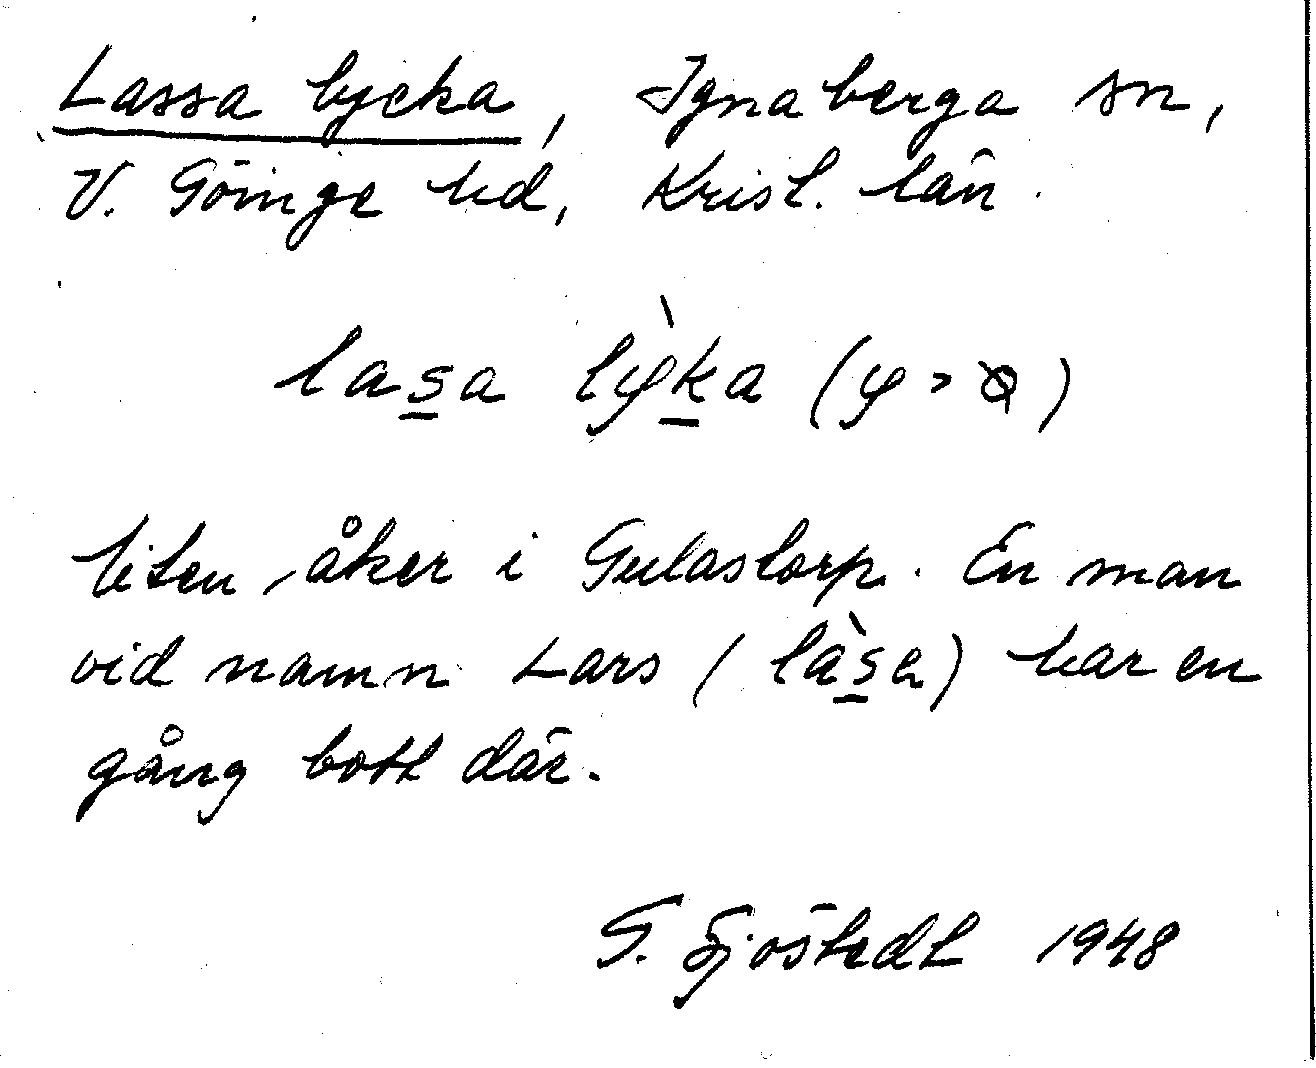 Lassa lycka, Ignaberga sn,
V. Göinge hd, Krist. län.
lasa lỳka (y > )
liten åker i Gulastorp. En man
vid namn Lars (làsa) har en
gång bott där.
G. Sjöstedt 1948